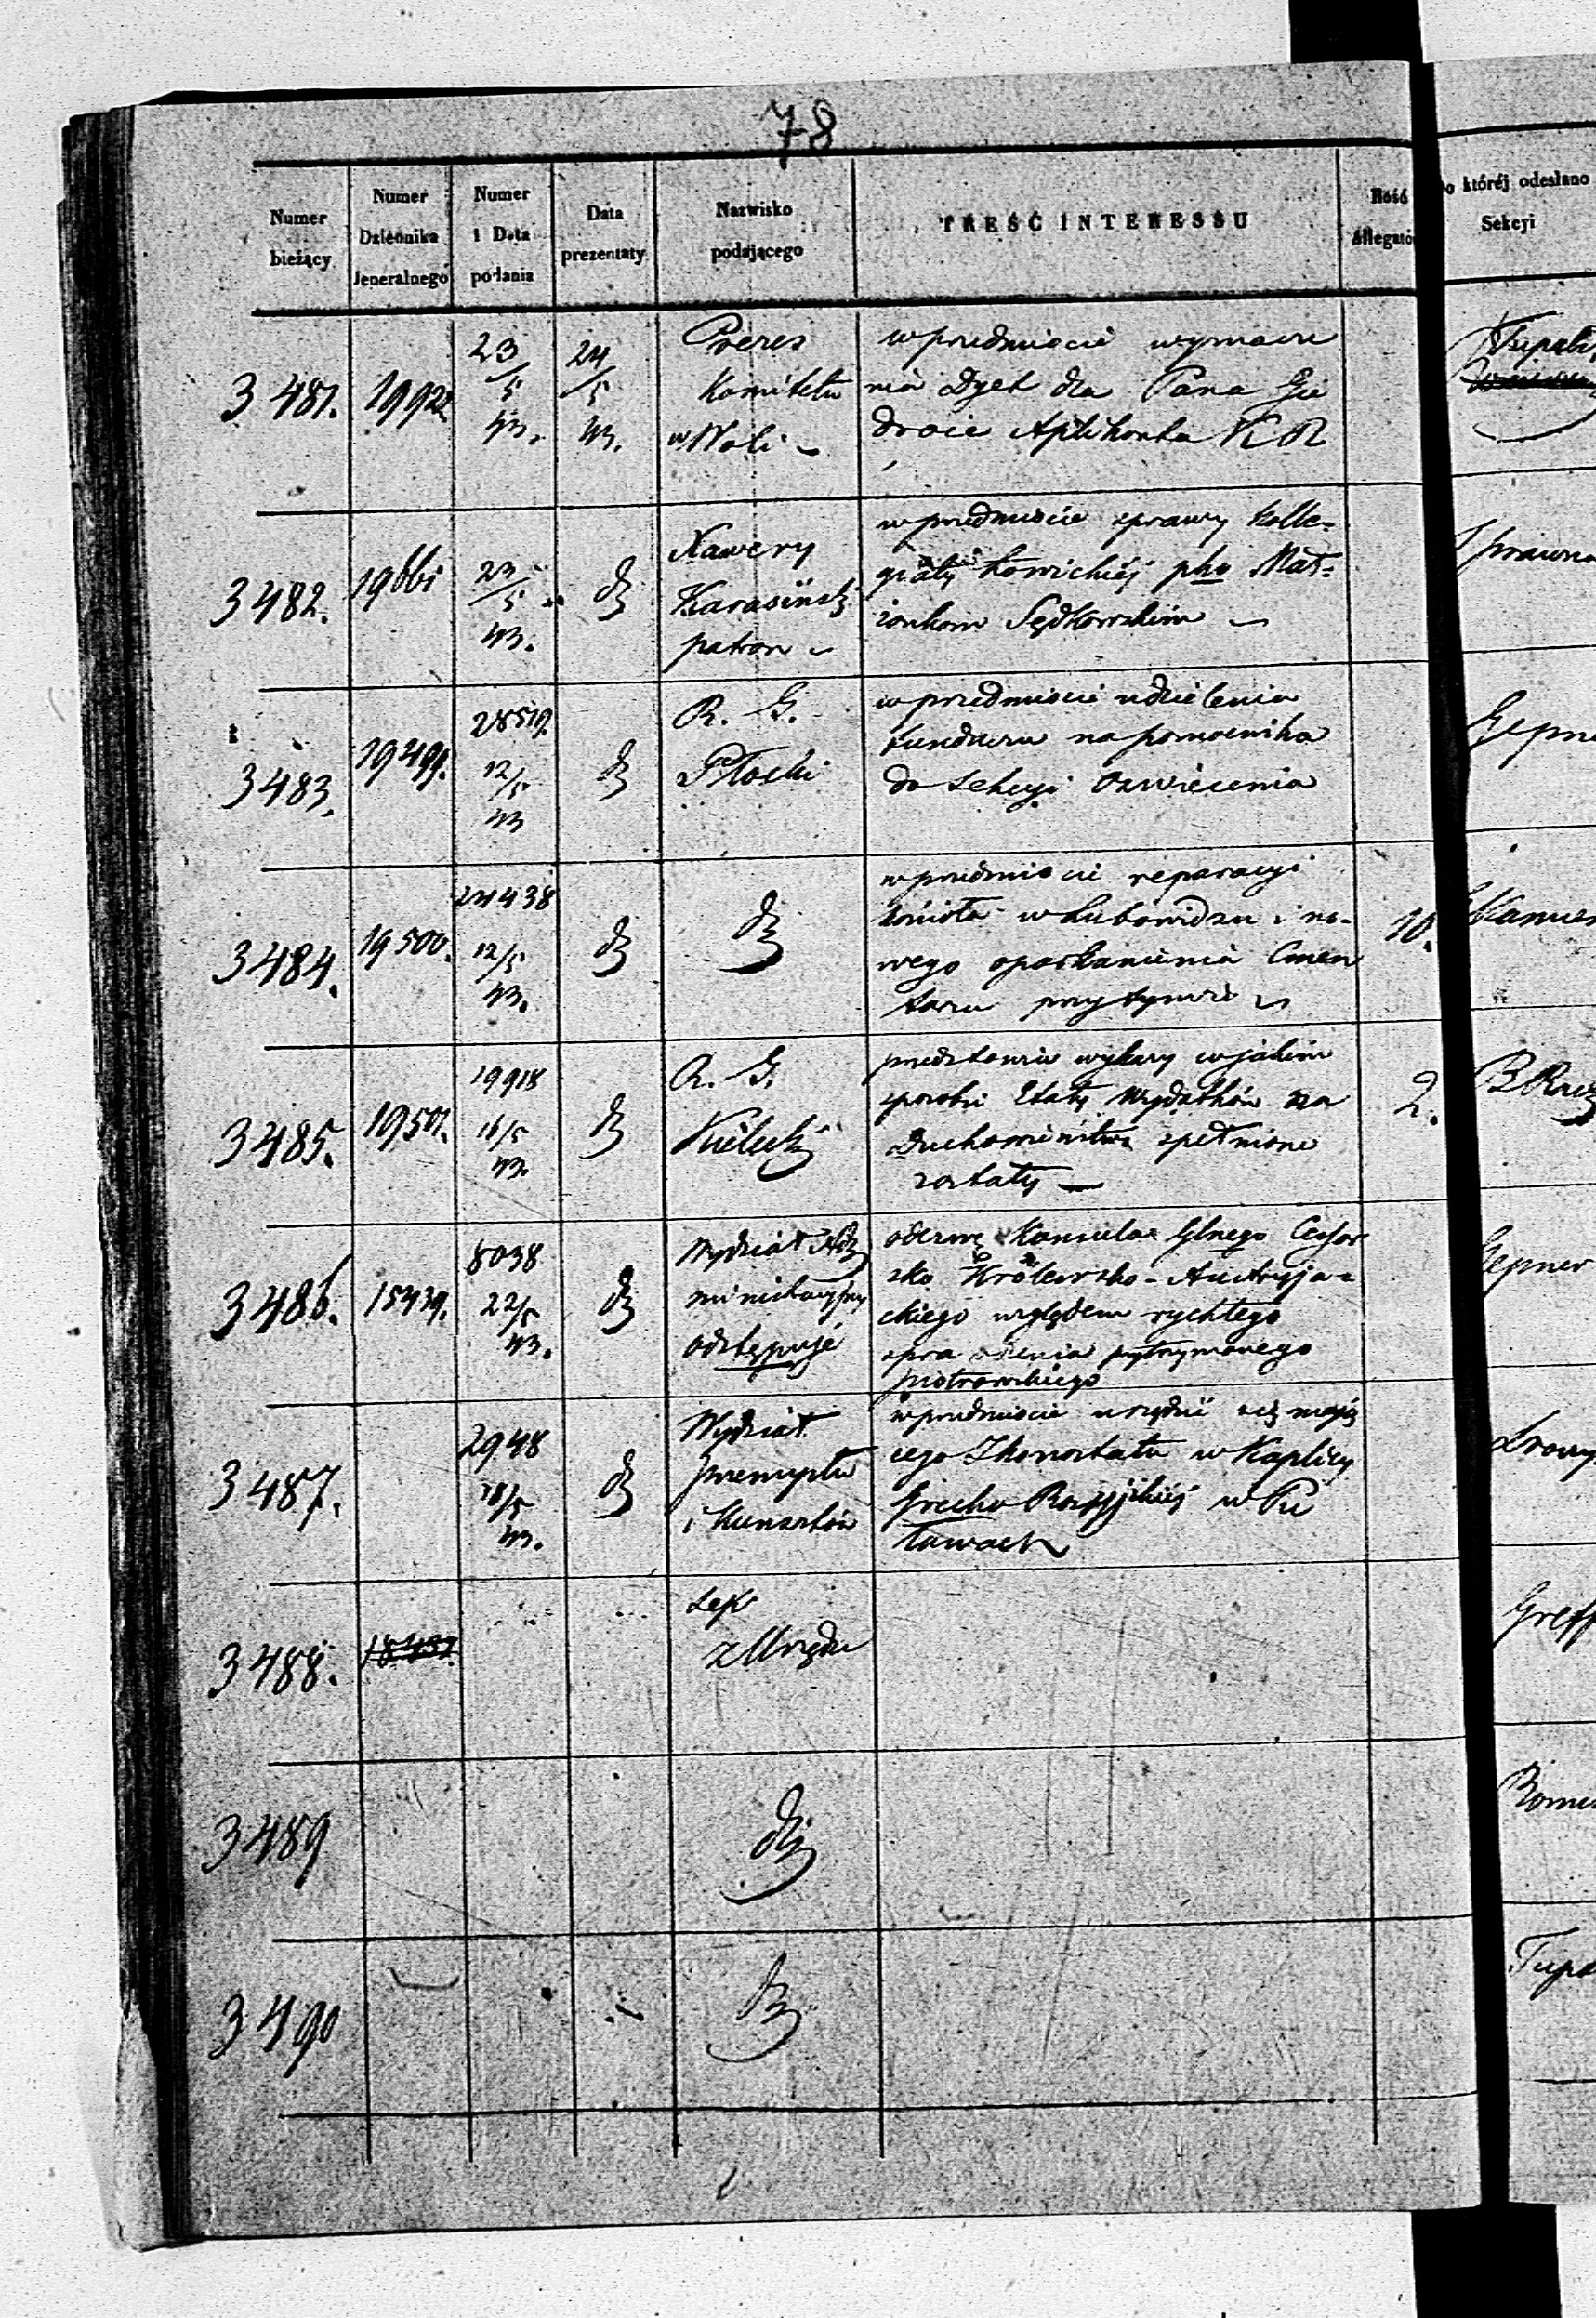 78
Numer bieżący
Numer Dziennika Jeneralnego
Numer i Data podania
Data prezentaty
Nazwisko podającego
TREŚĆ INTERESSU
Ilość Allegató
o któréj odesłano Sekcyi
3481.
19922
23/5 43.
24/5 43.
Prezes
Komitetu
w Woli
w przedmiocie wyznacze
nia Dyet dla Pana Gie
droić Aplikanta
3482.
19661
23/5 43.
Xawery
Karasiński
patron
w przedmiocie sprawy Kolle-
giaty Łowickiéj pko Mał-
żonkom Sędkowskim
Sprawno
3483.
19499.
28519.
12/5
43
R. G.
Płocki
w przedmiocie udzielenia
funduszu na pomocnika
do Sekcyi Oświecenia
Gepne
3484.
19500.
24438
12/5
43.
w przedmiocie reparacyi
kościoła w Lubowidzu i no-
wego oparkanienia Cmen
tarza przy tymże
10.
3485.
19501.
19918
16/5
43.
R. G.
Kielecki
przedstawia wykazy w jakim
sposobie Etaty Wydatków na
Duchowieństwo spełnione
zostały
2.
3486.
15439.
8038
22/5
43.
Wydział Ad
ministracyjny
odstępuje
odezwę Konsula Glnego Cesar
sko Królewsko-Austryja-
ckiego względem rychłego
przytrzymanego
Piotrowskiego
Gepner
3487.
2948
43.
Wydział
Przemysłu
i Kunsztów
w przedmiocie urządzić się mają
cego Ikonostatu w Kaplicy
Grecko Rossyjskiéj w Pu
ławach
3488.
z Urzędu
Greff
3489
3490